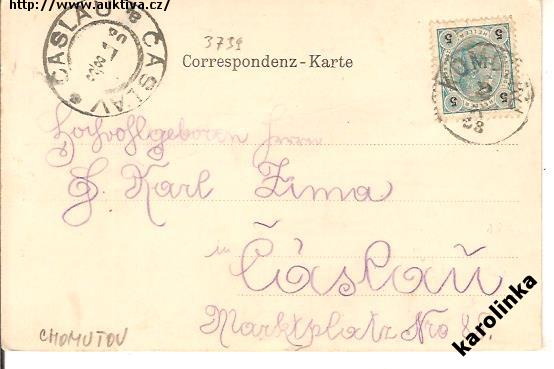 http://www.auktiva.cz/
ČÁSLAV ČASLAU
3739
Correspondenz-Karte
5 5
5 5
Hochwohlgeboren Herrn
Karl Zima
in
Čáslau
Marktplatz Nro 89.
CHOMUTOV
karolinka